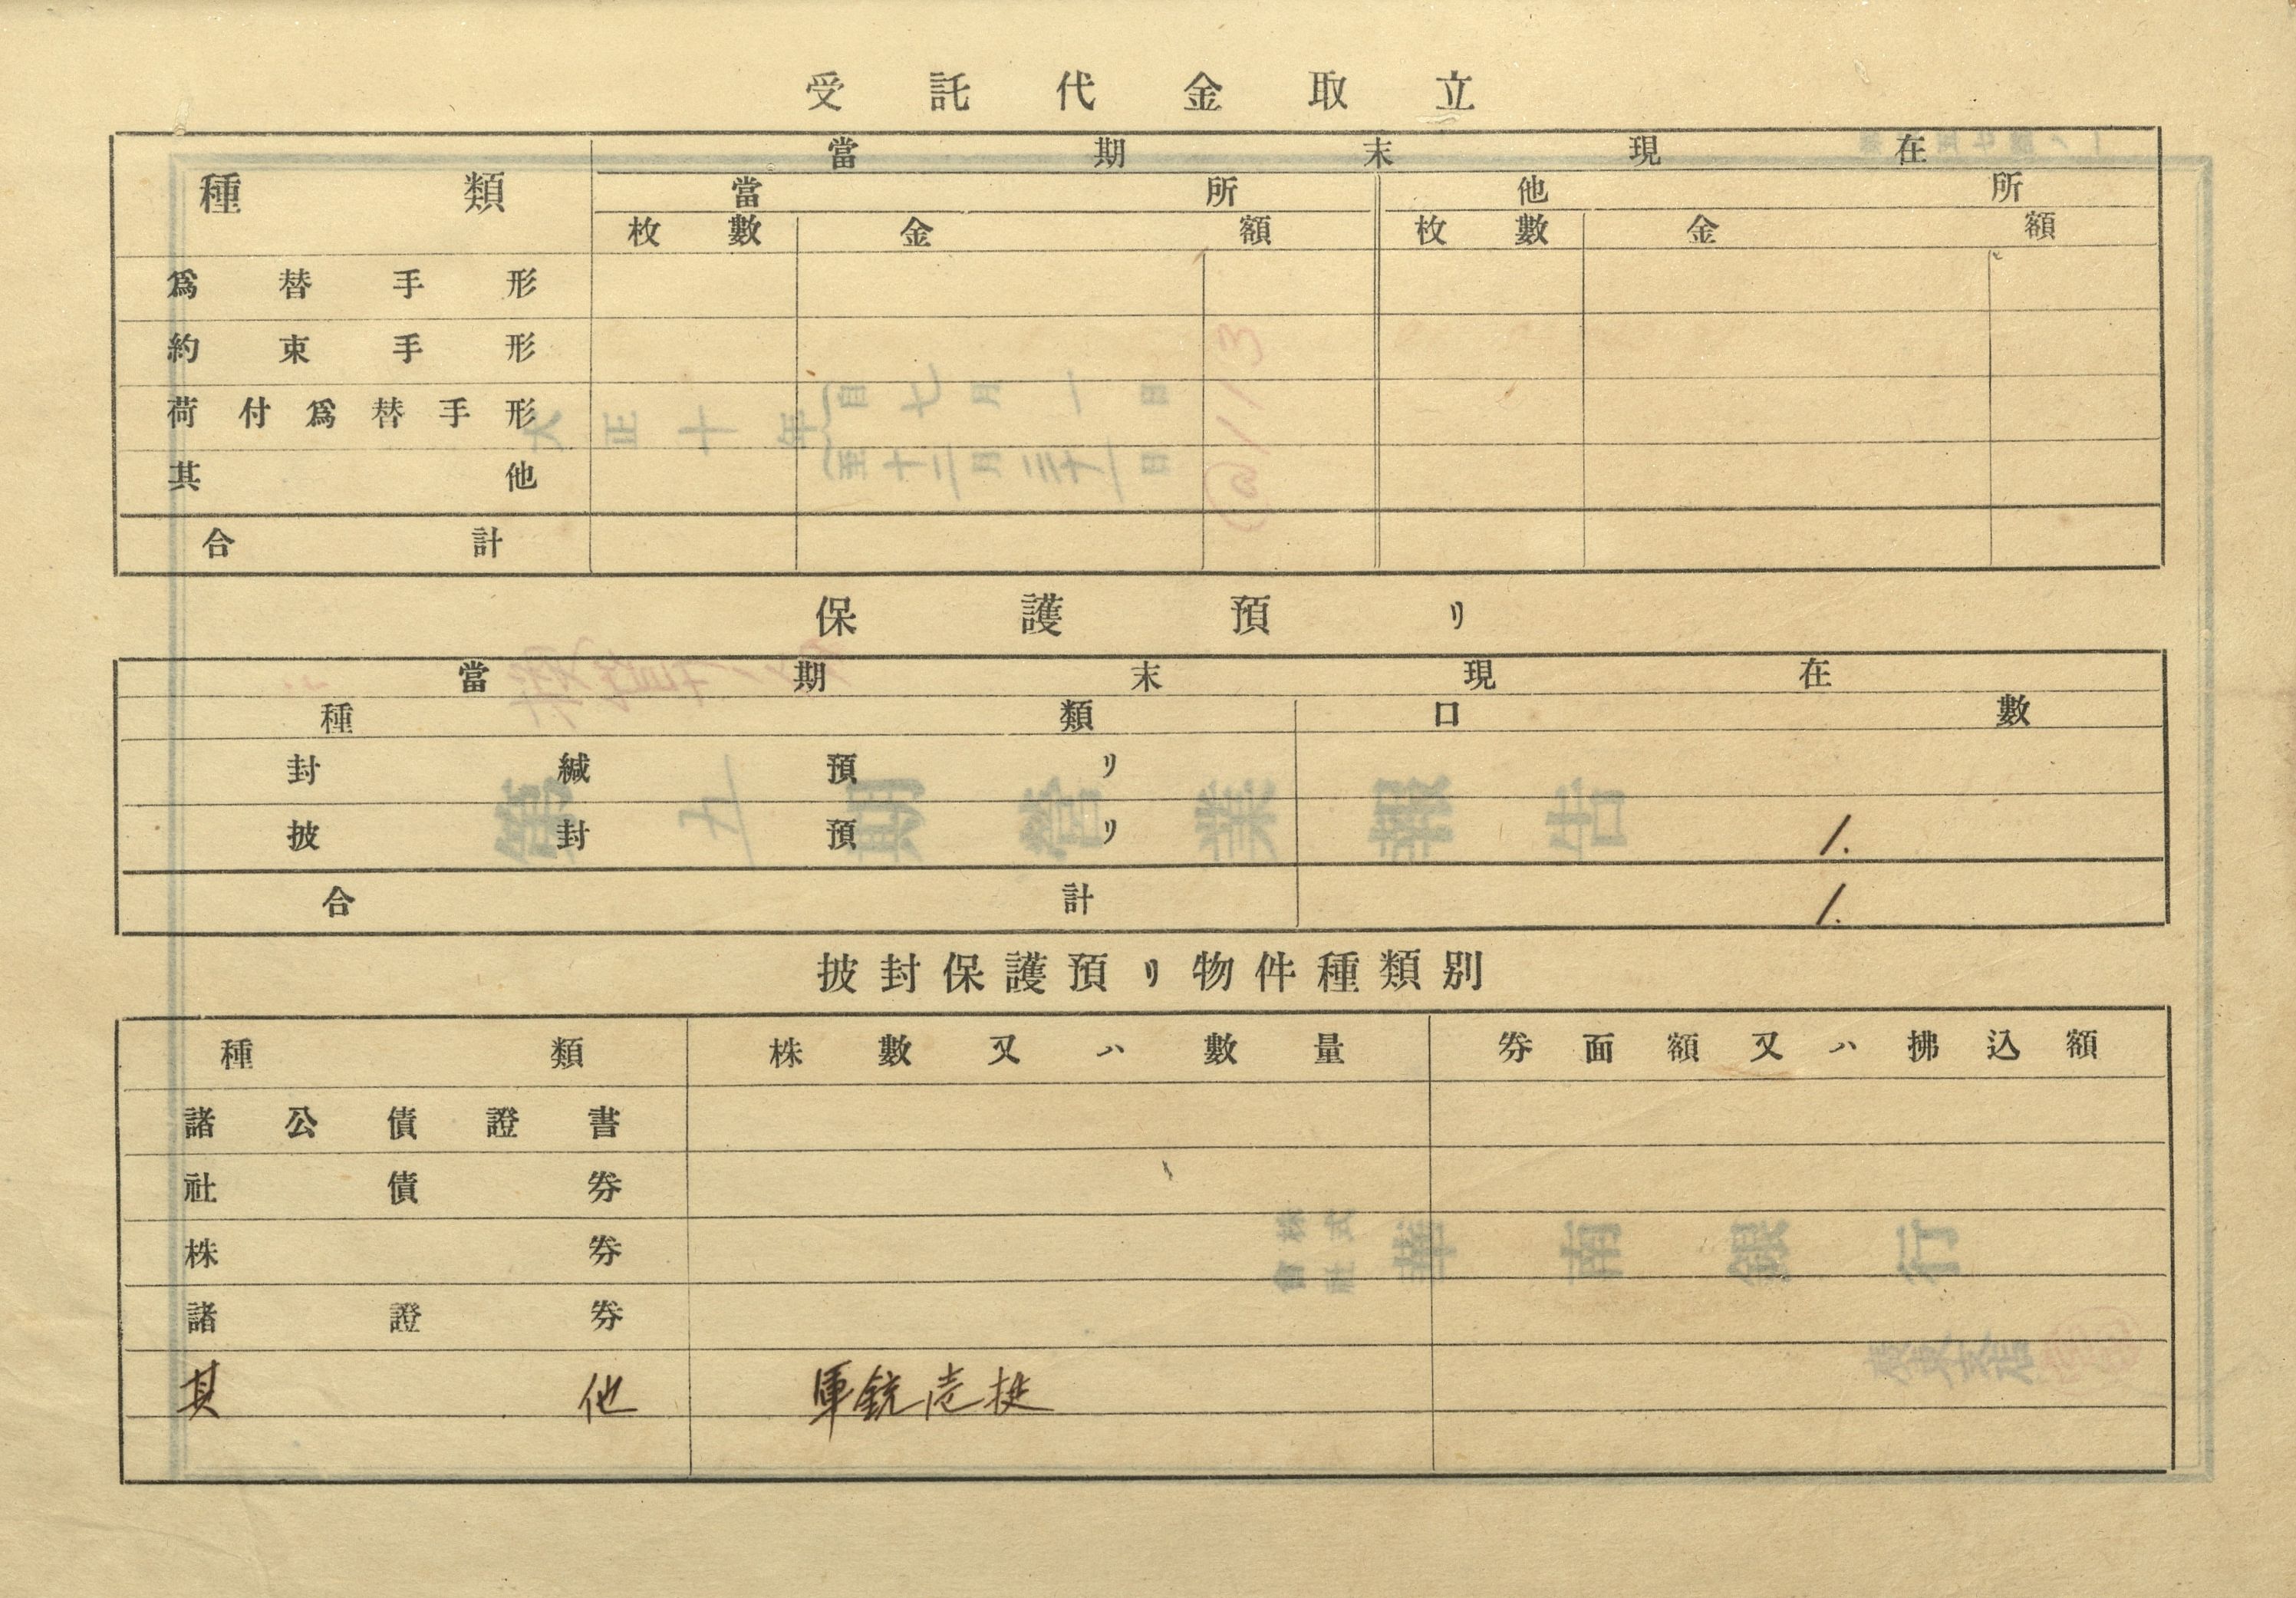 受託代金取立
種類 當期末現在
當所 他所
枚數 金額 枚數 金額
爲替手形
約束手形
荷付爲替手形
其他
合計
保護預リ
當期末現在
種類 口數
封緘預リ
披封預リ 1.
合計 1.
披封保護預リ物件種類別
種類 株數又ハ數量 券面額又ハ拂込額
諸公債證書
社債券
株券
諸證券
其他 軍銃壱挺
大正十年 自七月一日 至十二月三十一日
第五期營業報告
株式會社 華南銀行